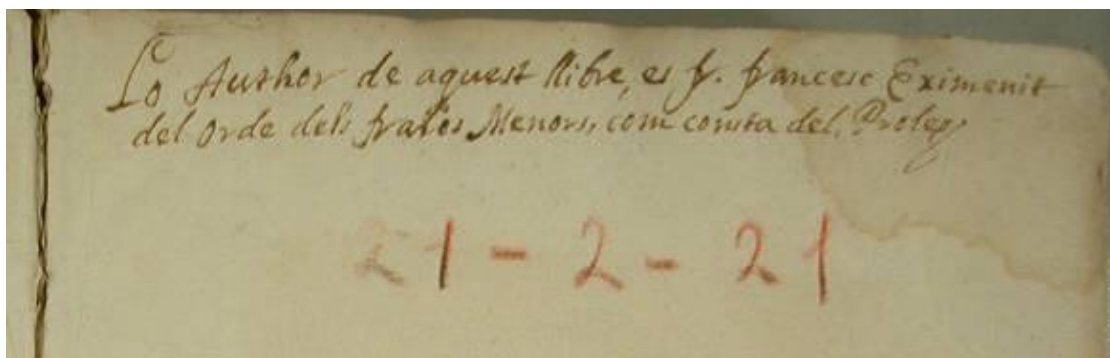 Lo Author de aquest llibre, es fr. francesc Eximenit
del orde dels frares Menors, com consta del Proleg,
21 - 2 - 21